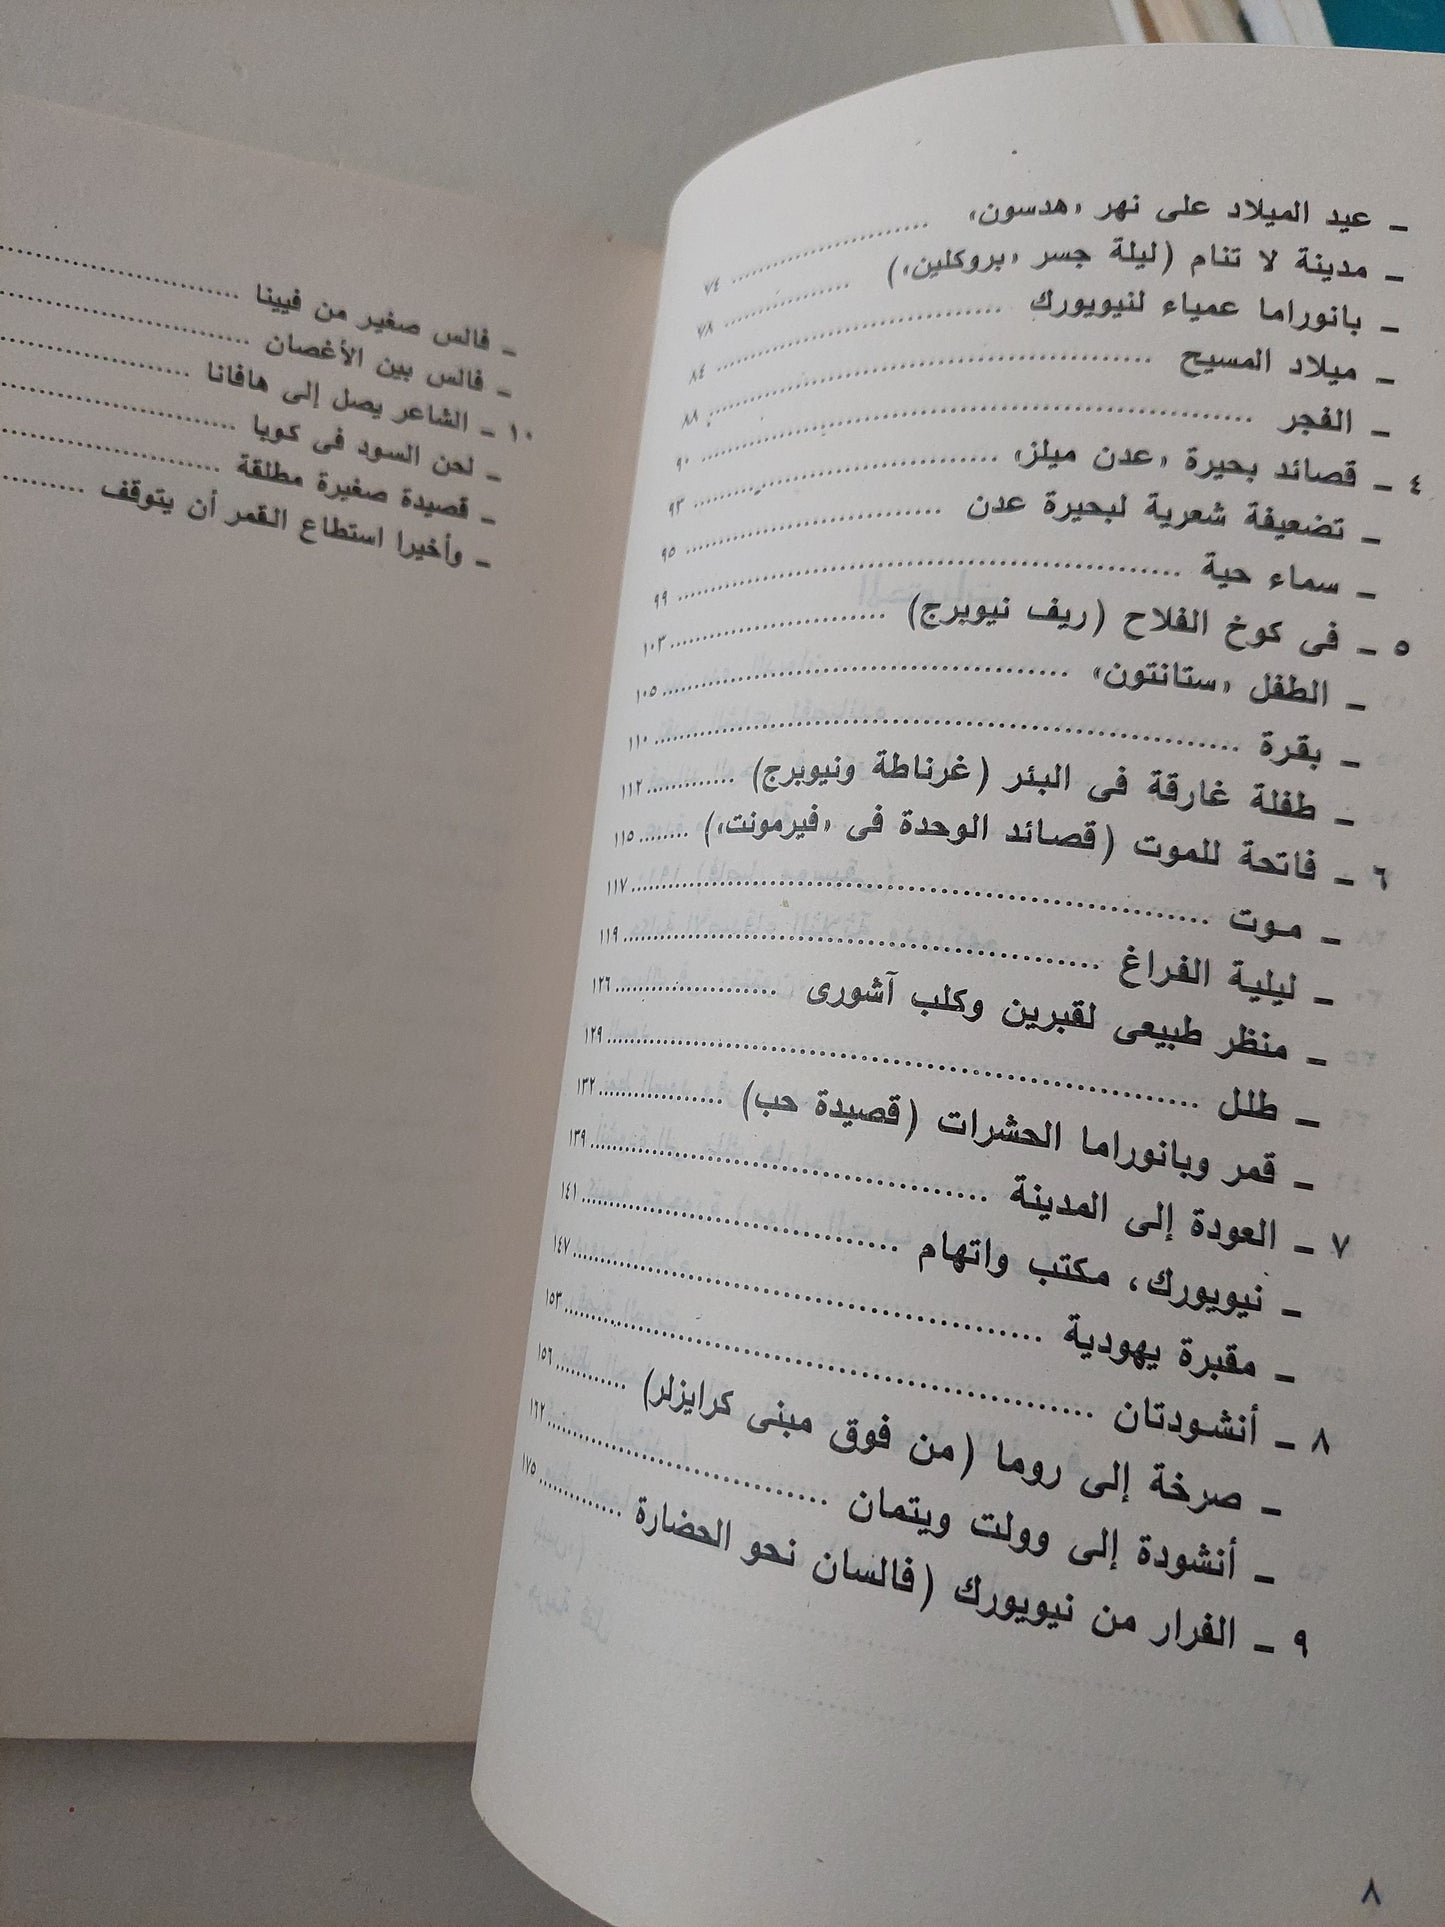 ـ عيد الميلاد على نهر «هدسون» ........ ٧٤
ـ مدينة لا تنام (ليلة جسر «بروكلين») ........ ٧٨
ـ بانوراما عمياء لنيويورك ........ ٨٤
ـ ميلاد المسيح ........ ٨٨
ـ الفجر ........ ٩٠
٤ ـ قصائد بحيرة «عدن ميلز» ........ ٩٣
ـ تضعيفة شعرية لبحيرة عدن ........ ٩٥
ـ سماء حية ........ ٩٩
٥ ـ فى كوخ الفلاح (ريف نيوبرج) ........ ١٠٣
ـ الطفل «ستانتون» ........ ١٠٥
ـ بقرة ........ ١١٠
ـ طفلة غارقة فى البئر (غرناطة ونيوبرج) ........ ١١٢
٦ ـ فاتحة للموت (قصائد الوحدة فى «فيرمونت») ........ ١١٥
ـ موت ........ ١١٧
ـ ليلية الفراغ ........ ١١٩
ـ منظر طبيعى لقبرين وكلب آشورى ........ ١٢٦
ـ طلل ........ ١٢٩
ـ قمر وبانوراما الحشرات (قصيدة حب) ........ ١٣٢
٧ ـ العودة إلى المدينة ........ ١٣٩
ـ نيويورك، مكتب واتهام ........ ١٤١
ـ مقبرة يهودية ........ ١٤٧
٨ ـ أنشودتان ........ ١٥٣
ـ صرخة إلى روما (من فوق مبنى كرايزلر) ........ ١٥٦
ـ أنشودة إلى وولت ويتمان ........ ١٦٢
٩ ـ الفرار من نيويورك (فالسان نحو الحضارة ........ ١٧٥
٨
ـ فالس صغير من فيينا ........
ـ فالس بين الأغصان ........
١٠ ـ الشاعر يصل إلى هافانا ........
ـ لحن السود فى كوبا ........
ـ قصيدة صغيرة مطلقة ........
ـ وأخيرا استطاع القمر أن يتوقف ........